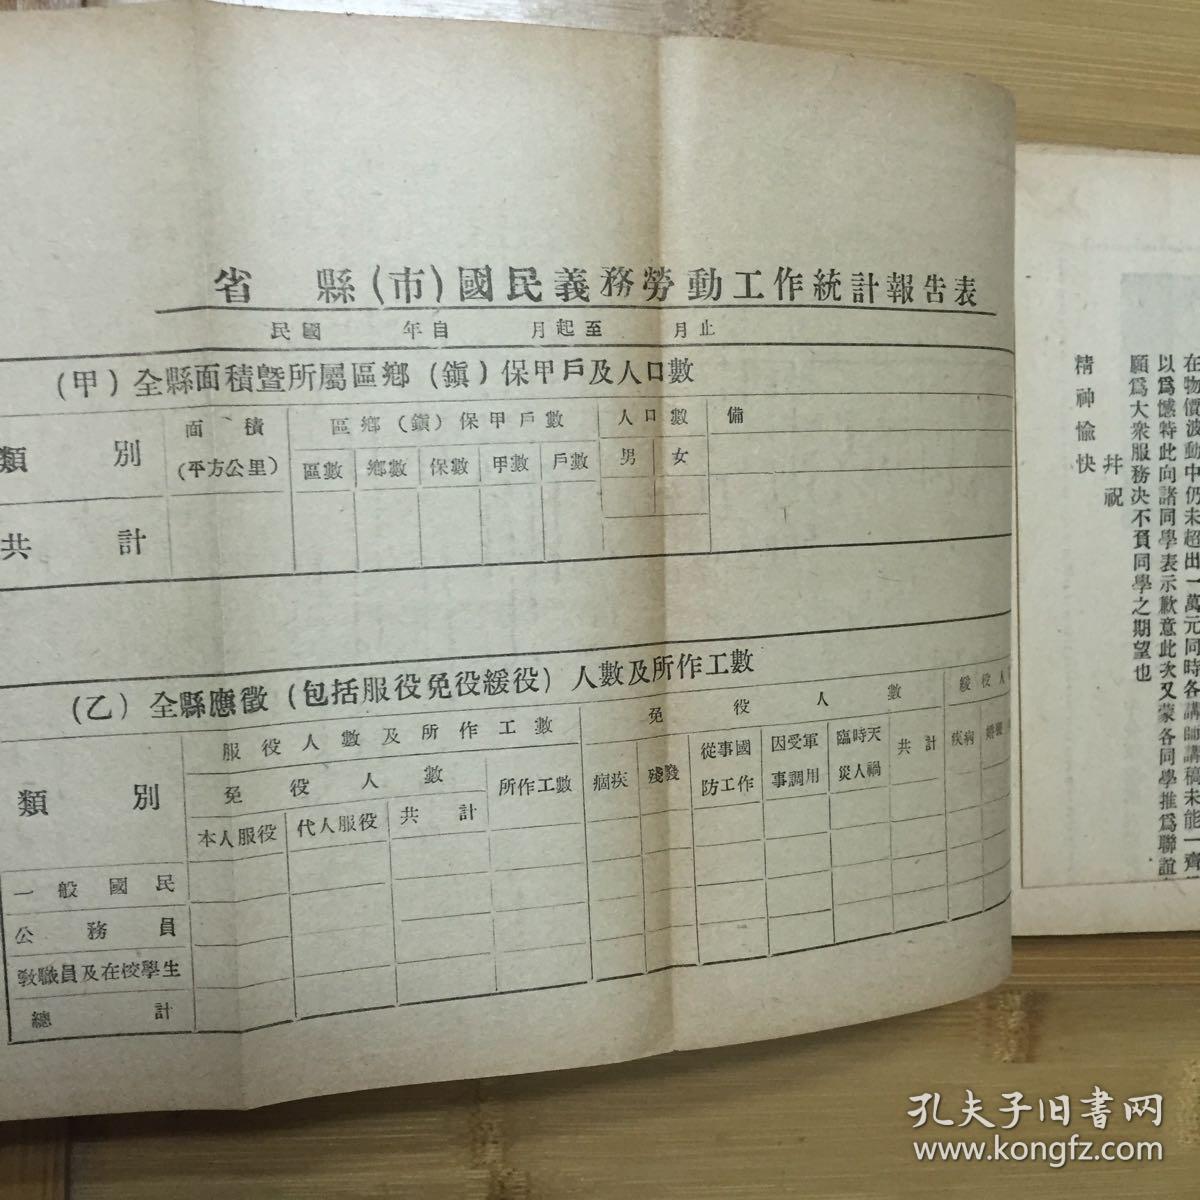 省　縣(市)國民義務勞動工作統計報告表
民國　年自　月起至　月止
(甲)全縣面積暨所屬區鄉(鎮)保甲戶及人口數
類別　面積(平方公里)　區鄉(鎮)保甲戶數　人口數　備
區數　鄉數　保數　甲數　戶數　男　女
共計
(乙)全縣應徵(包括服役免役緩役)人數及所作工數
類別　服役人數及所作工數　免役人數　緩役人
免役人數　所作工數　痼疾　殘廢　從事國防工作　因受軍事調用　臨時天災人禍　共計　疾病
本人服役　代人服役　共計
一般國民
公務員
教職員及在校學生
總計
在物價波動中仍未超出一萬元同時各講師講稿未能一齊
以爲憾特此向諸同學表示歉意此次又蒙各同學推爲聯誼
願爲大衆服務決不負同學之期望也
幷祝
精神愉快
孔夫子旧书网
www.kongfz.com